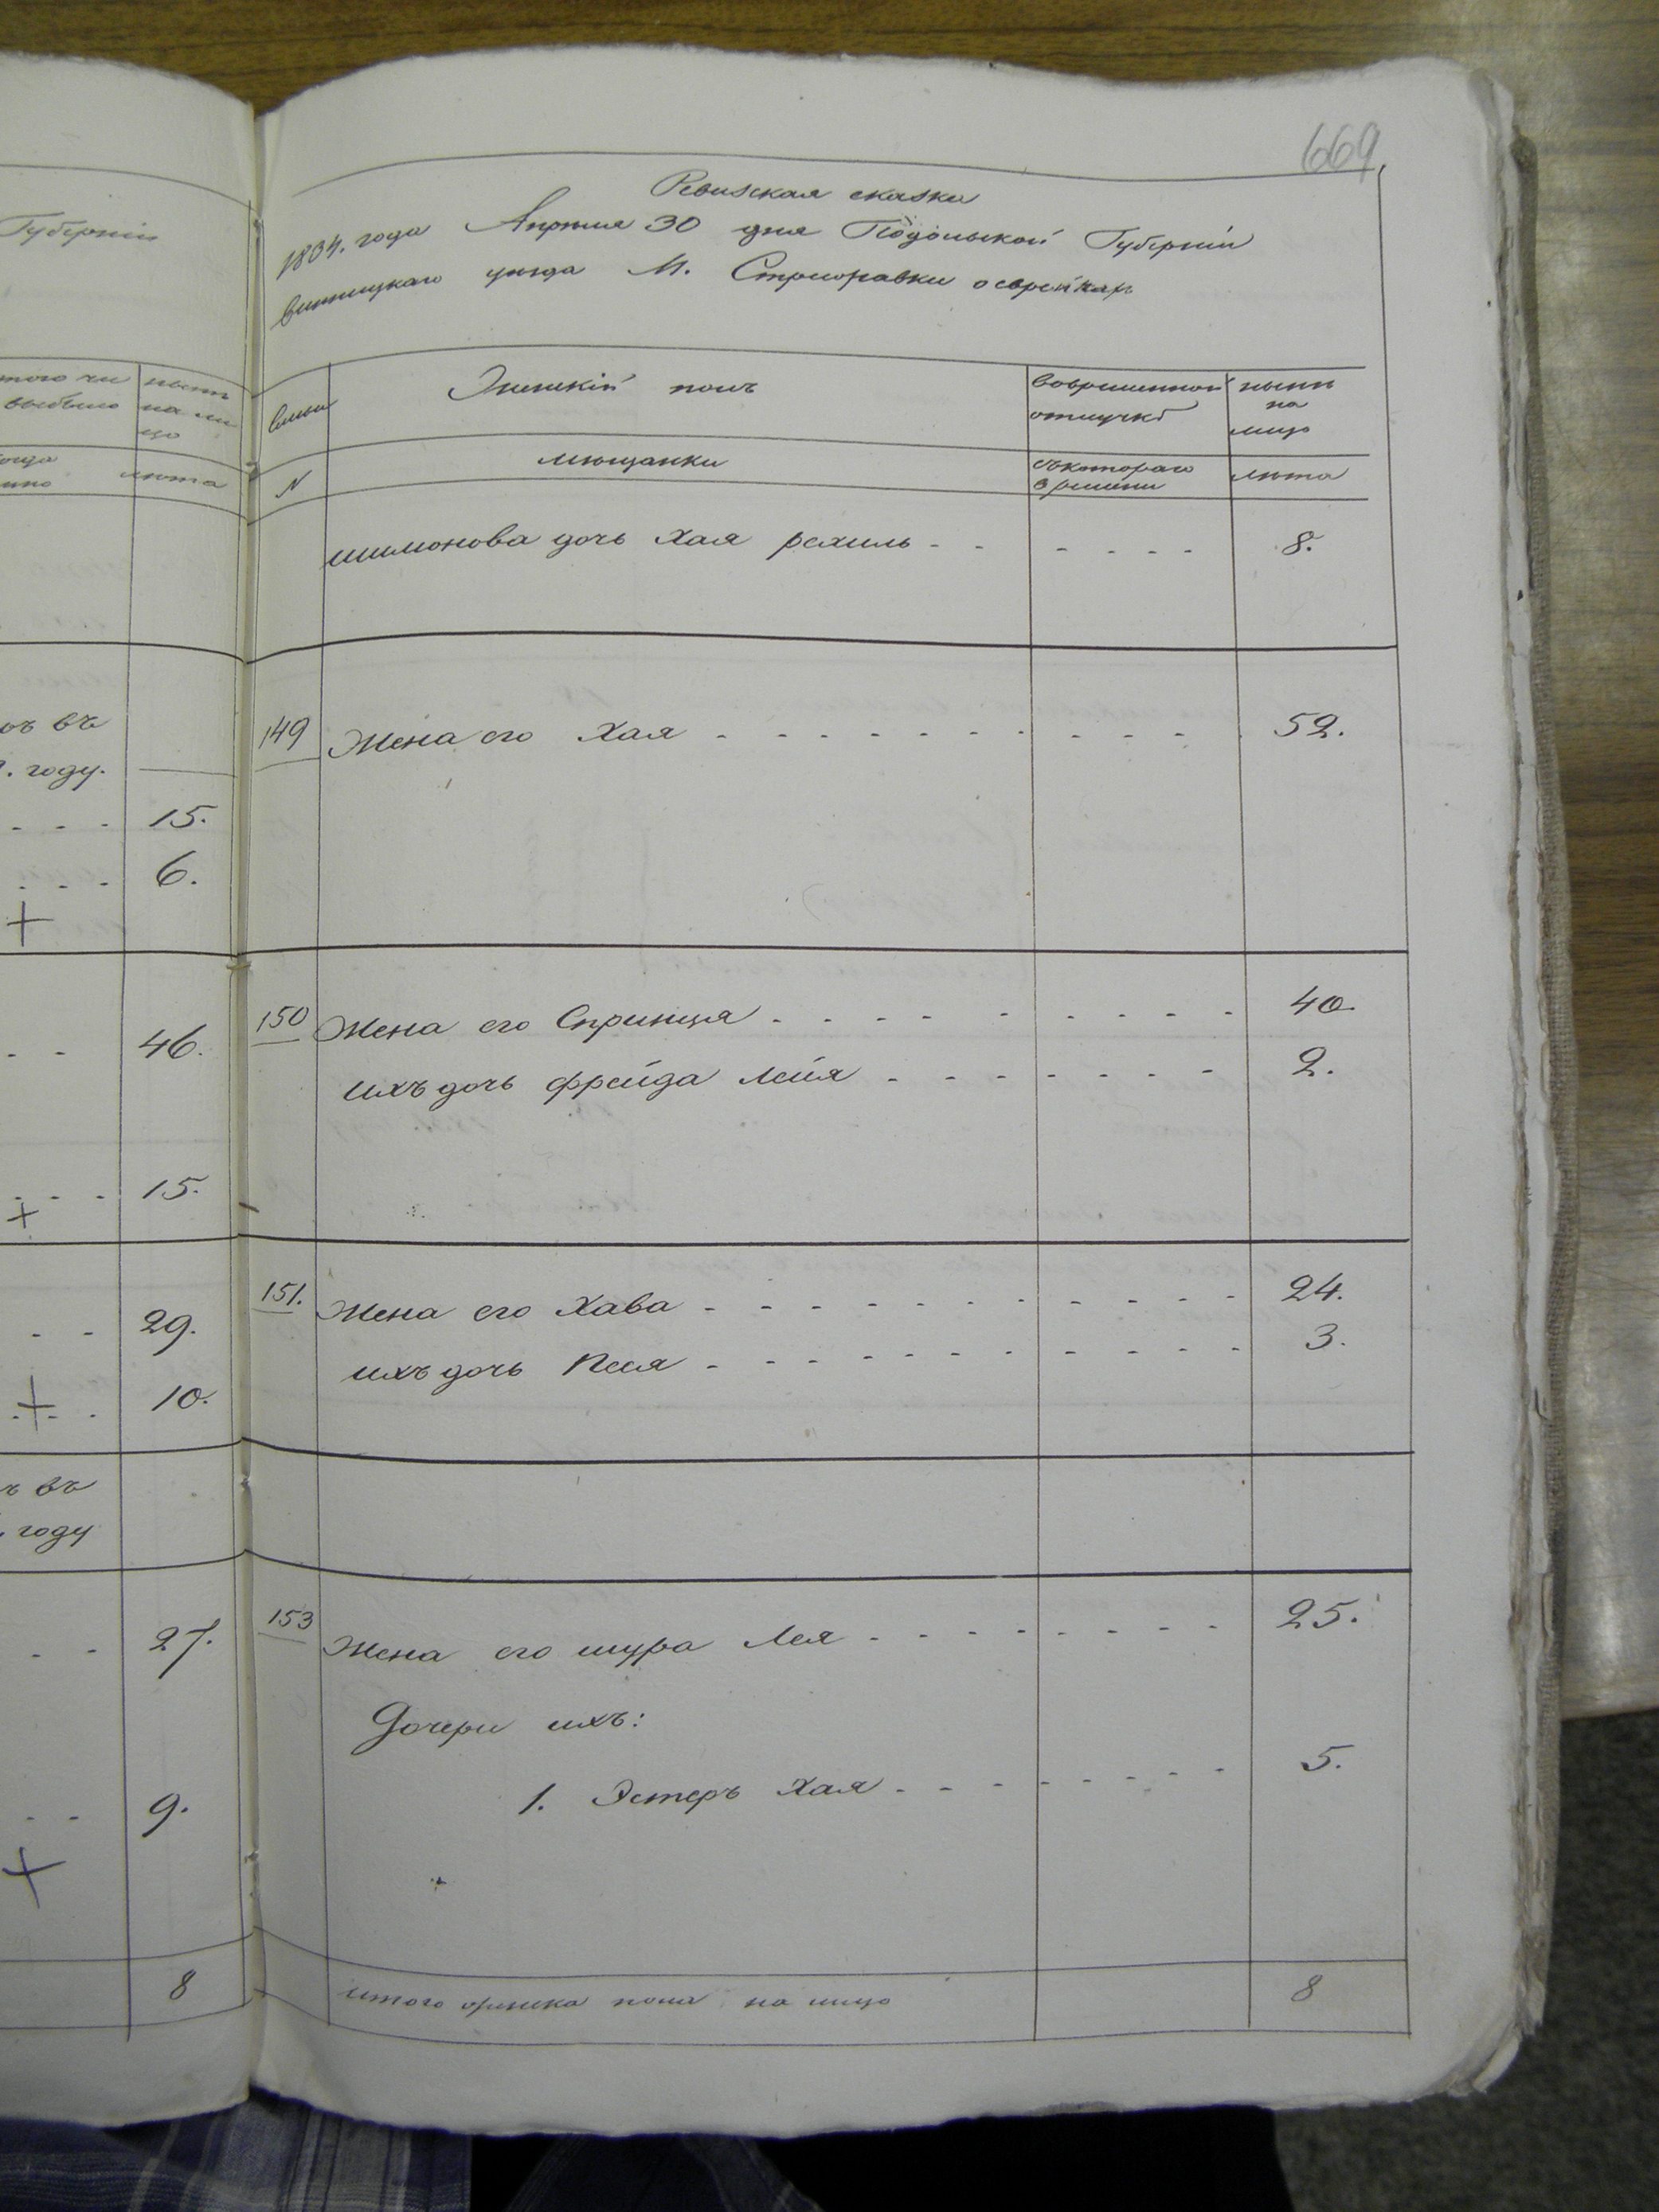 669
Губерніи
Ревизская сказка
1834. года Апрѣля 30 дня Подольской Губерніи
винницкаго уѣзда М. Стрижавки о еврейкахъ
выбыло
нынѣ
на ли
цо
лѣта
семьи
Женскій полъ
вовременной
отлучкѣ
нынѣ
на
лицо
N
мѣщанки
съкотораго
времени
лѣта
шимонова дочь Хая рехиль - - - - - - 8.
въ
149 Жена его Хая - - - - - - - - - - 52.
. году.
- - - 15.
- - - 6.
+
150 Жена его Спринца - - - - - - - - - 40.
- - 46.
ихъ дочь фрейда Лейя - - - - - - - 2.
- - - 15.
+
151. Жена его Хава - - - - - - - - - - - 24.
- - 29.
ихъ дочь Песя - - - - - - - - - - - 3.
+ 10.
въ
. году
153 Жена его шура Лея - - - - - - - - 25.
- - 27.
Дочери ихъ:
1. Эстеръ Хая - - - - - - - - 5.
- - 9.
+
8
итого женска пола на лицо 8